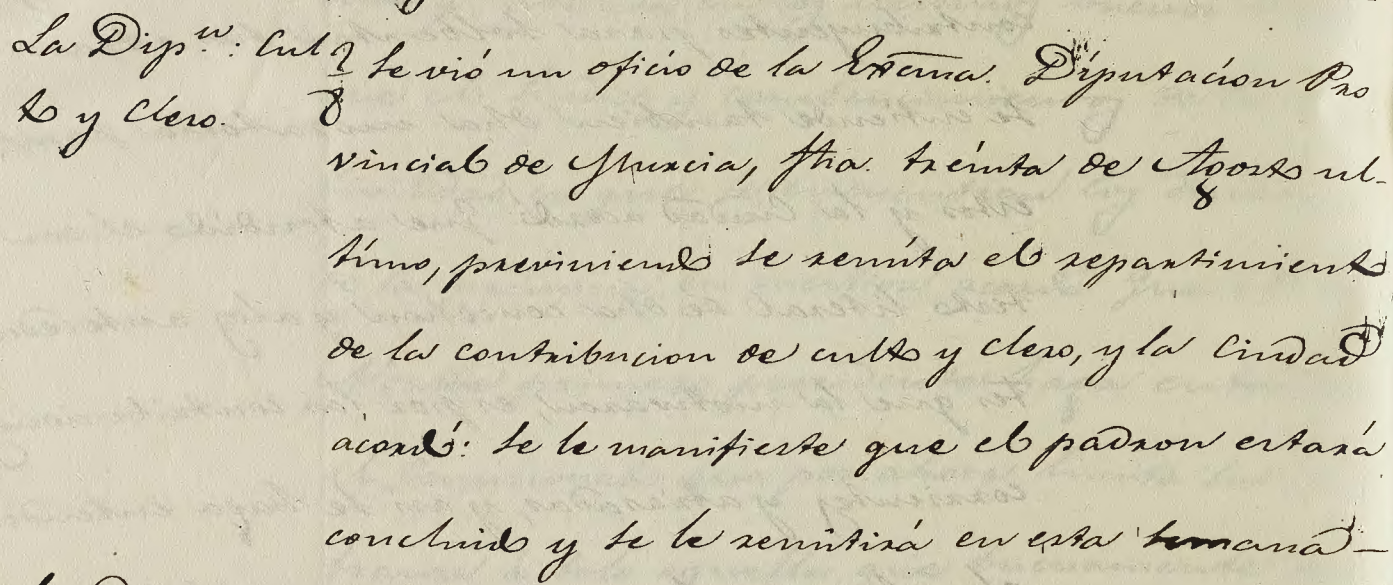 La Dip.n: Cul
to y Clero.
Se vió un oficio de la Exc̃ma. Diputacion Pro
vincial de Murcia, fha. treinta de Agosto ul-
timo, previniendo se remita el repartimiento
de la contribucion de culto y clero, y la Ciudad
acordó: Se le manifieste que el padron estará
concluido y se le remitirá en esta semana —